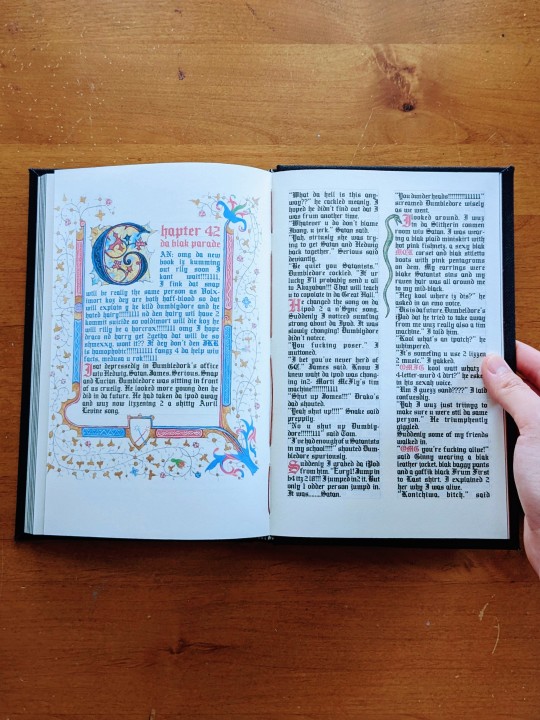 Chapter 42
da blak parade
AN: omg da new
book iz kumming
out rlly soon I
kant wait!!!!1111.
I fink dat snap
will be really the same person as Volx-
imort koz dey are both haff-blood so dat
will explain y he kild dumblydore and he
hated hairy!!!!1111 nd den hairy will have 2
kommit suicide so voldimort will die koz he
will rlly be a horcrux!!!!1111 omg I hope
draco nd harry get 2gethe dat will be so
shmexxy, wont it?? If dey don't den JKR
is hamophobic!!!1111111 fangz 4 da help wiv
facts, medusa u rok!!!111
Just depressingly in Dumbledork's office
wuz Hedwig, Satan, James, Serious, Snap
and Lucian. Dumbledore was sitting in front
of us cruelly. He looked more young den he
did in da future. He had taken da ipod away
and wuz now lizzening 2 a shitty Avril
Levine song.
"What da hell is this any-
way??" he cackled meanly. I
hoped he didn't find out dat I
was frum another time.
"Whatever u do don't blame
Ibony, u jerk." Satan said.
"Yah, siriusly she was try-
ing to get Satan and Hedwig
back together." Serious said
deviantly.
"Be quiet you Satanists."
Dumbledore cackled. "If ur
lucky I'll probably send u all
to Akazaban!! That will teach
u to copulate in da Great Hall."
He changed the song on da
ipod 2 a n'Sync song.
Suddenly I noticed sumfing
strong about da Ipod. It was
slowly changing! Dumbledore
didn't notece.
"You fucking poser." I
muttoned.
"I bet you've never herd of
GC," James said. Know I
knew wuht da ipod was chang-
ing in2- Morti McFly'g tim
machine!!!!!11111111
"Shut up James!!" Drako's
dad shouted.
"Yeah shut up!!!!" Snake said
preppily.
"No u shut up Dumbly-
dore!!!11111111" said Tom.
"I've had enough of u Satanists
in my school!!!!" shouted Dum-
bledore spuriously.
Suddenly I grabed da iPod
from him. "Eoryl! Jump in
b4 itz 2 l8!!!! I jumped in2 it. But
only 1 older person jumpd in.
It was.......Satan.
"You dunderheads!!!!!!!!!1111111"
screamed Dumbledore wisely
as we went.
I looked around. I wuz
in da Slitherin common
room wiv Satan. I was wear-
ing a blak plaid miniskirt with
hot pink fishnetz, a sexy blak
MCR corset and blak stiletto
boots with pink pentagrams
on dem. My earrings were
blakc Satanist sins and my
raven hair was all around me
to my mid-black.
"Hey kool where iz dis?" he
asked in an emo voice.
"Dis is da future. Dumblydore's
iPod dat he tried to take away
from me wuz really also a tim
machine." I told him.
"Kool what's an ipatch?" he
whimpered.
"It's somefing u use 2 lizzen
2 music." I yakked.
"OMG kool wait whatz
4-letter-word 4 dirt?" he esked
in his sexah voice.
"Um I guezz sand????" I laid
confusedly.
"Yah I wuz just triingy to
make sure u were still da same
person." He triumphently
giggled.
Suddenly some of my friends
walked in.
"OMG you're fucking alive!"
said Ginny wearing a blak
leather jacket, blak baggy pants
and a goffik black Frum First
to Last shirt. I explained 2
her why I was alive.
"Konichiwa, bitch." said